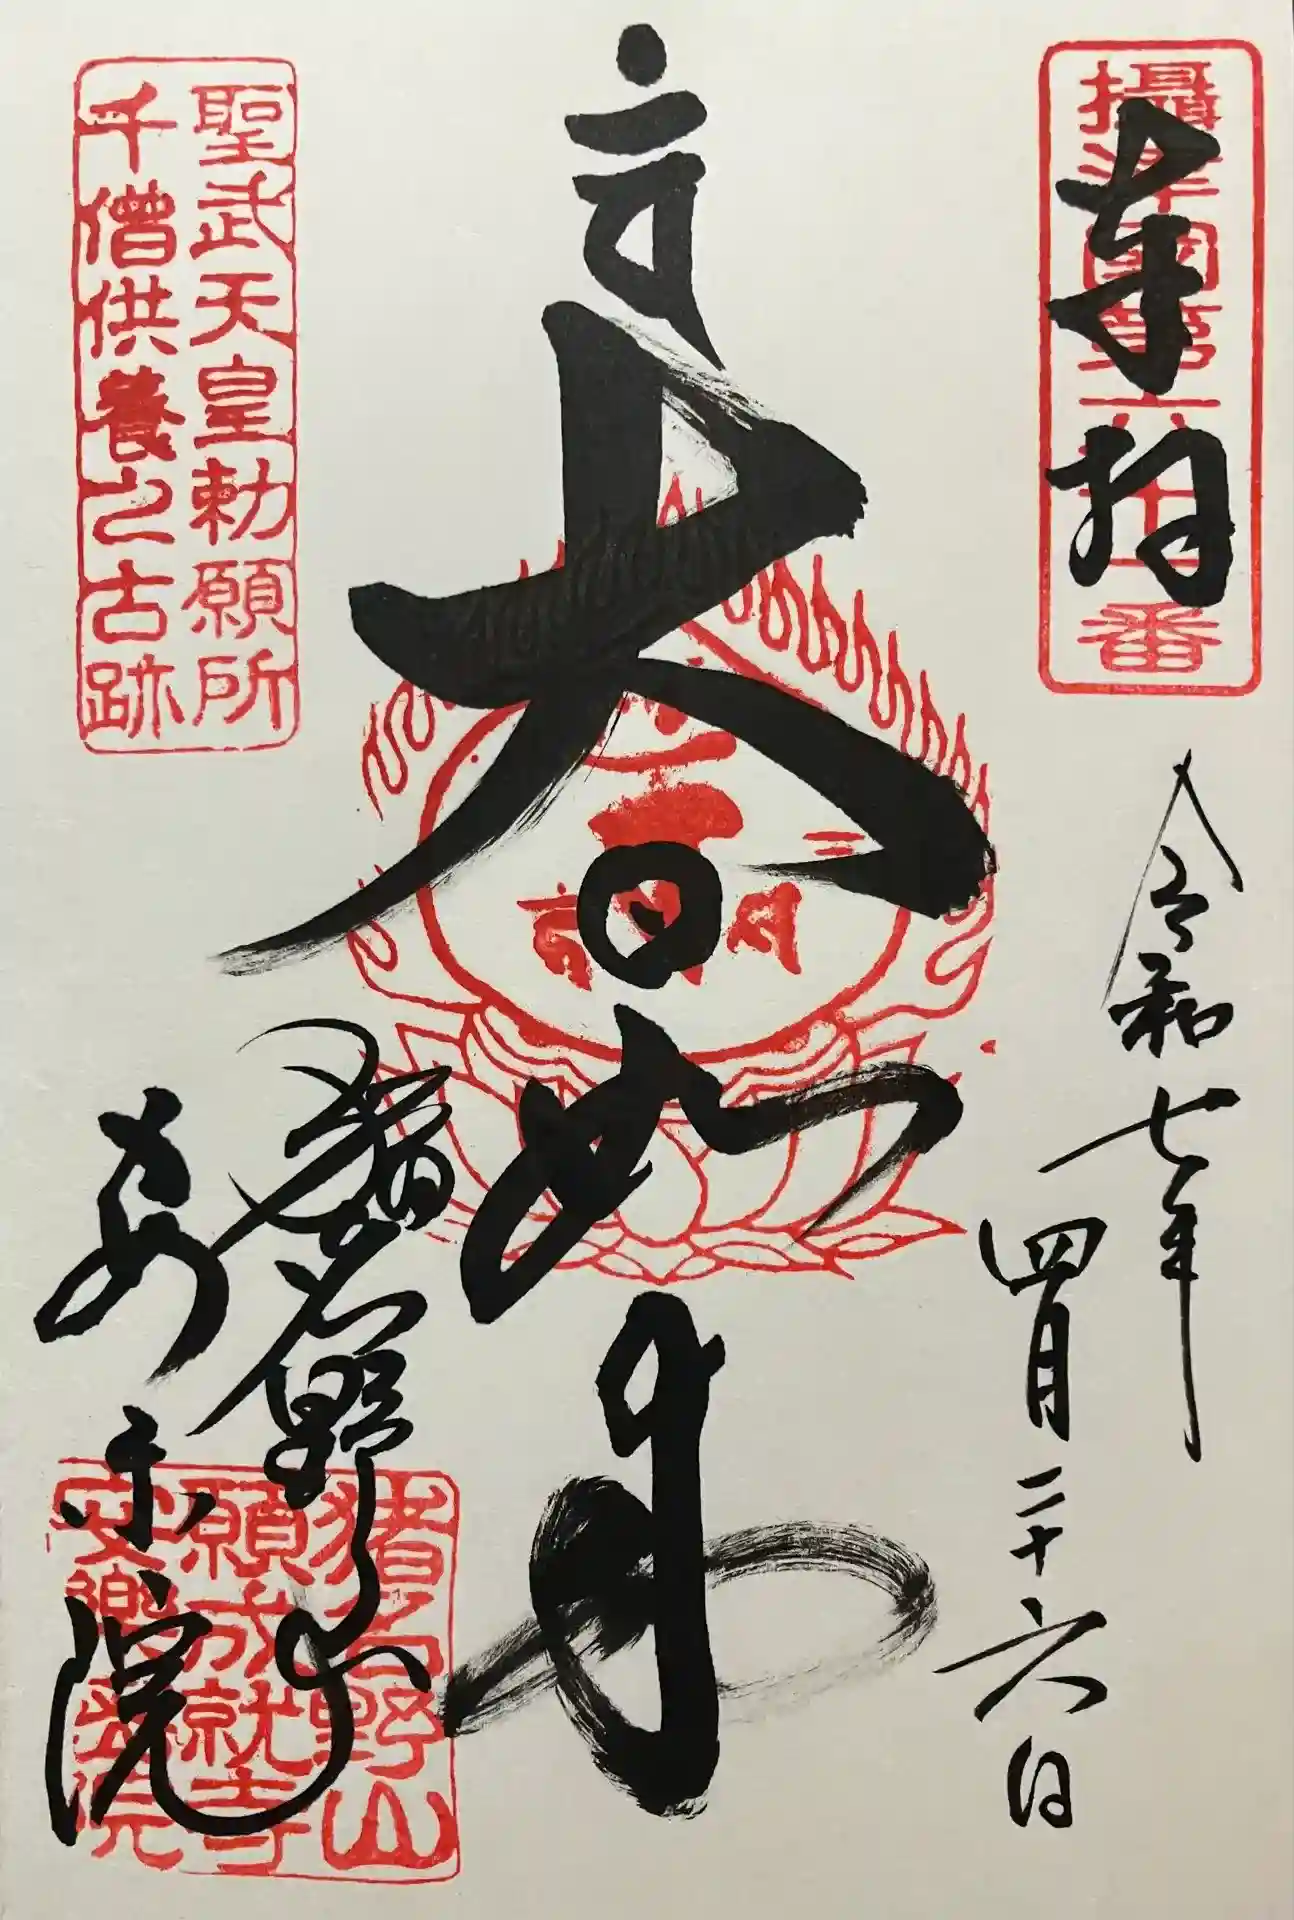 攝津國第六十一番
奉拝
令和七年
四月二十六日
大日如来
聖武天皇勅願所
千僧供養之古跡
猪名野山
安楽院
猪名野山
願成就寺
安樂院